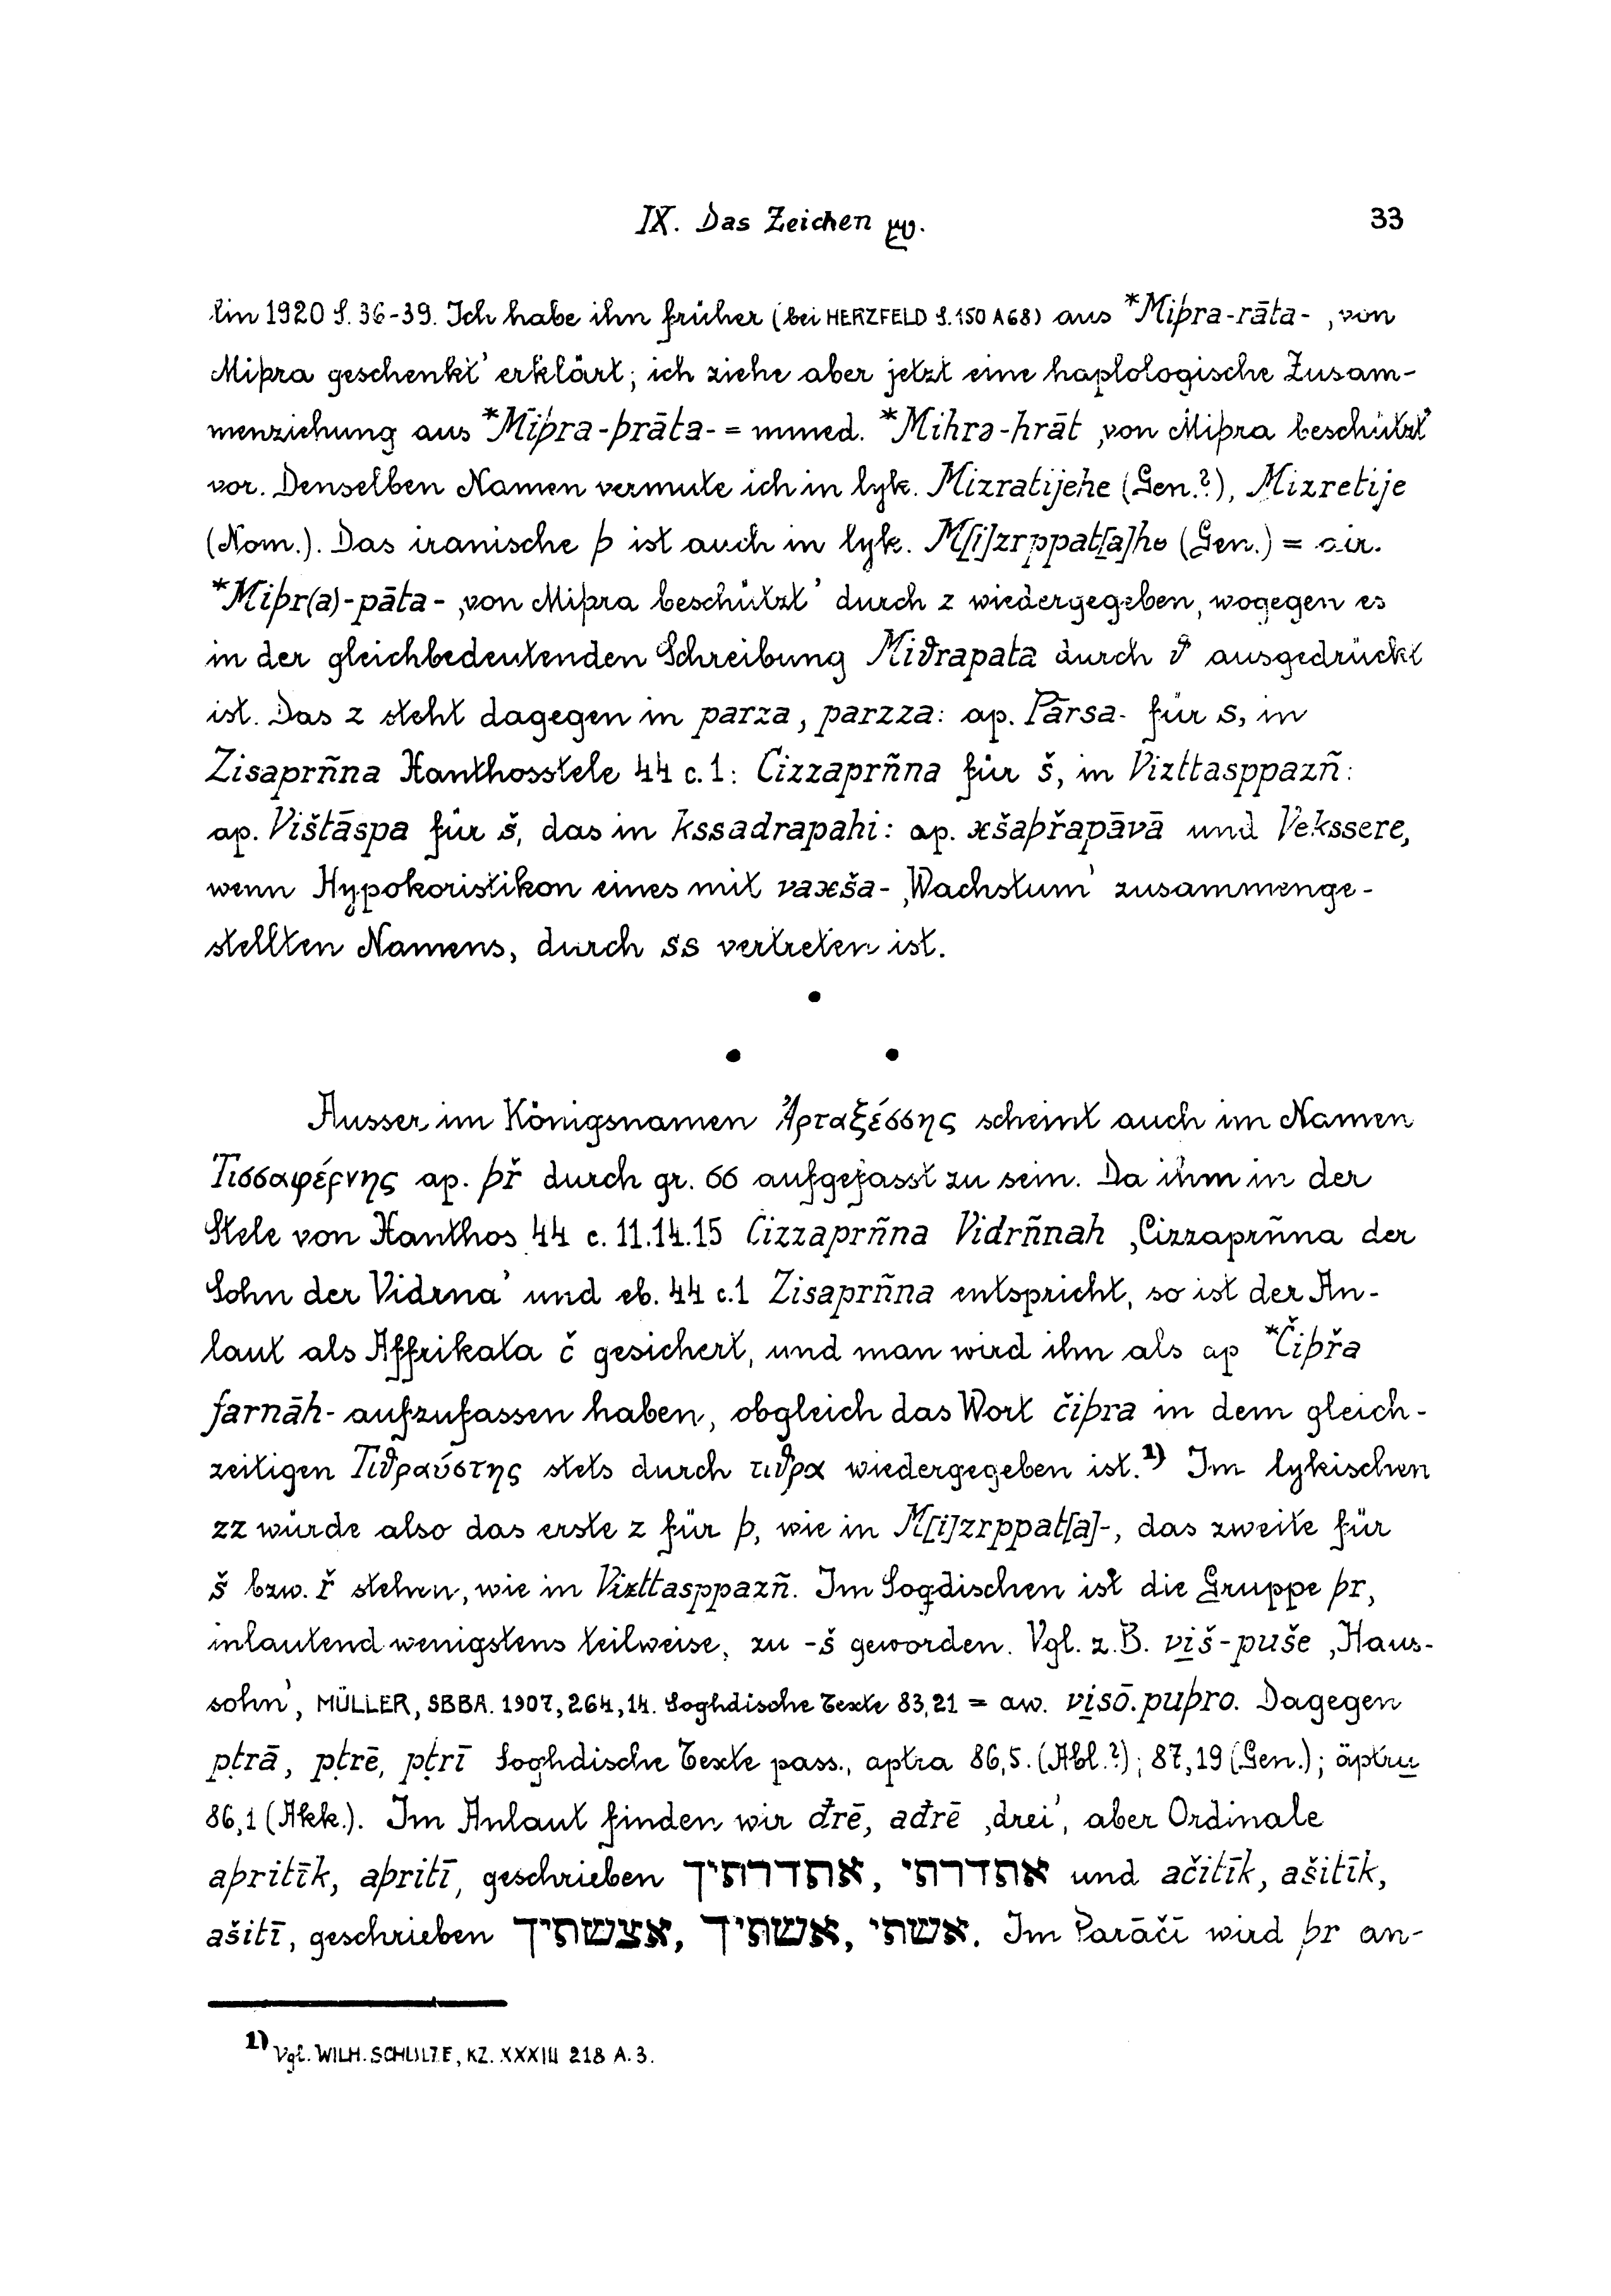 IX. Das Zeichen
33
lin 1920 S. 36-39. Ich habe ihn früher (bei HERZFELD S. 150 A68) aus *Miþra-rāta- ‚von
Miþra geschenkt’ erklärt; ich ziehe aber jetzt eine haplologische Zusam-
menziehung aus *Miþra-þrāta- = mmed. *Mihrə-hrāt ‚von Miþra beschützt’
vor. Denselben Namen vermute ich in lyk. Mizratijehe (Gen.?), Mizretije
(Nom.). Das iranische þ ist auch in lyk. M[i]zrppat[a]he (Gen.) = air.
*Miþr(a)-pāta- ‚von Miþra beschützt’ durch z wiedergegeben, wogegen es
in der gleichbedeutenden Schreibung Miϑrapata durch ϑ ausgedrückt
ist. Das z steht dagegen in parza, parzza: ap. Pārsa- für s, in
Zisaprñna Xanthosstele 44 c. 1: Cizzaprñna für š, in Vizttasppazñ:
ap. Vištāspa für š, das in kssadrapahi: ap. xšaþřapāvā und Vekssere,
wenn Hypokoristikon eines mit vaxša- ‚Wachstum’ zusammenge-
stellten Namens, durch ss vertreten ist.
•
• •
Ausser im Königsnamen Ἀρταξέσσης scheint auch im Namen
Τισσαφέρνης ap. þř durch gr. σσ aufgefasst zu sein. Da ihm in der
Stele von Xanthos 44 c. 11.14.15 Cizzaprñna Vidrñnah ‚Cizzaprñna der
Sohn der Vidrna’ und eb. 44 c.1 Zisaprñna entspricht, so ist der An-
laut als Affrikata č gesichert, und man wird ihm als ap *Čiþřa
farnāh- aufzufassen haben, obgleich das Wort čiþra in dem gleich-
zeitigen Τιϑραύστης stets durch τιϑρα wiedergegeben ist.¹⁾ Im lykischen
zz würde also das erste z für þ, wie in M[i]zrppat[a]-, das zweite für
š bzw. ř stehen, wie in Vizttasppazñ. Im Sogdischen ist die Gruppe þr,
inlautend wenigstens teilweise, zu -š geworden. Vgl. z. B. vi̱š-puše ‚Haus-
sohn’, MÜLLER, SBBA. 1907, 264, 14. Soghdische Texte 83,21 = aw. vi̱sō.puþro. Dagegen
pṭrā, pṭrē, pṭrī Soghdische Texte pass., aptra 86,5. (Abl.?); 87,19 (Gen.); äptru̱
86,1 (Akk.). Im Anlaut finden wir đrē, ađrē ‚drei’, aber Ordinale
aþritīk, aþritī, geschrieben אתדרתיך, אתדרתי und ačitīk, ašitīk,
ašitī, geschrieben אצשתיך, אשתיך, אשתי. Im Parāčī wird þr an-
¹⁾ Vgl. WILH. SCHULZE, KZ. XXXIII 218 A. 3.